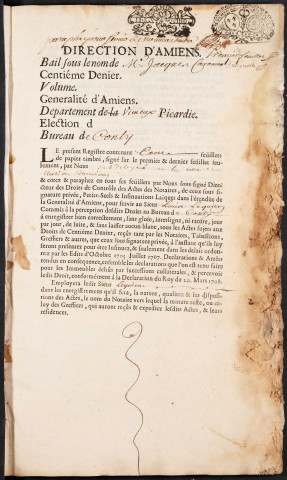 DIRECTION D'AMIENS.
Bail sous le nom de Me Jacques
Centiéme Denier.
Volume.
Generalité d'Amiens.
Departement de la Vimeux Picardie.
Election d
Bureau de Conty
LE present Registre contenant feuillets
de papier timbré, signé sur le premier & dernier feüillet seu-
lement, par Nous
& cotez & paraphez en tous ses feüillets par Nous sous signé Direc-
teur des Droits de Contrôle des Actes des Notaires, de ceux sous si-
gnature privée, Petits-Scels & Insinuations Laïques dans l'étenduë de
la Generalité d'Amiens, pour servir au Sieur
Commis à la perception desdits Droits au Bureau de Conty
à enregistrer bien correctement, sans glose, interligne, ni rature, jour
par jour, de suite, & sans laisser aucun blanc, tous les Actes sujets aux
Droits de Centiéme Denier, reçûs tant par les Notaires, Tabellions,
Greffiers & autres, que ceux sous signature privée, à l'instant qu'ils luy
seront presentez pour être Insinuez, & seulement dans les délais ordon-
nez par les Edits d'Octobre 1705 Juillet 1707. Declarations & Arrêts
rendus en consequence, ensemble les declarations que l'on est tenu faire
pour les Immeubles déchûs par successions collaterales, & percevoir
lesdits Droits, conformément à la Declaration du Roy du 20. Mars 1708.
Employera ledit Sieur
dans les enregistremens qu'il fera, la nature, qualitez & les disposi-
tions des Actes, le nom du Notaire vers lequel la minute reste, ou ce-
luy des Greffiers, qui auront reçûs & expediez lesdits Actes, & leurs
residences.